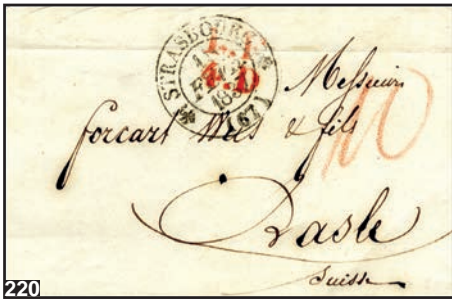 STRASBOURG
(67)
Messieurs
forcart Weis & fils
Basle
Suisse
10
220